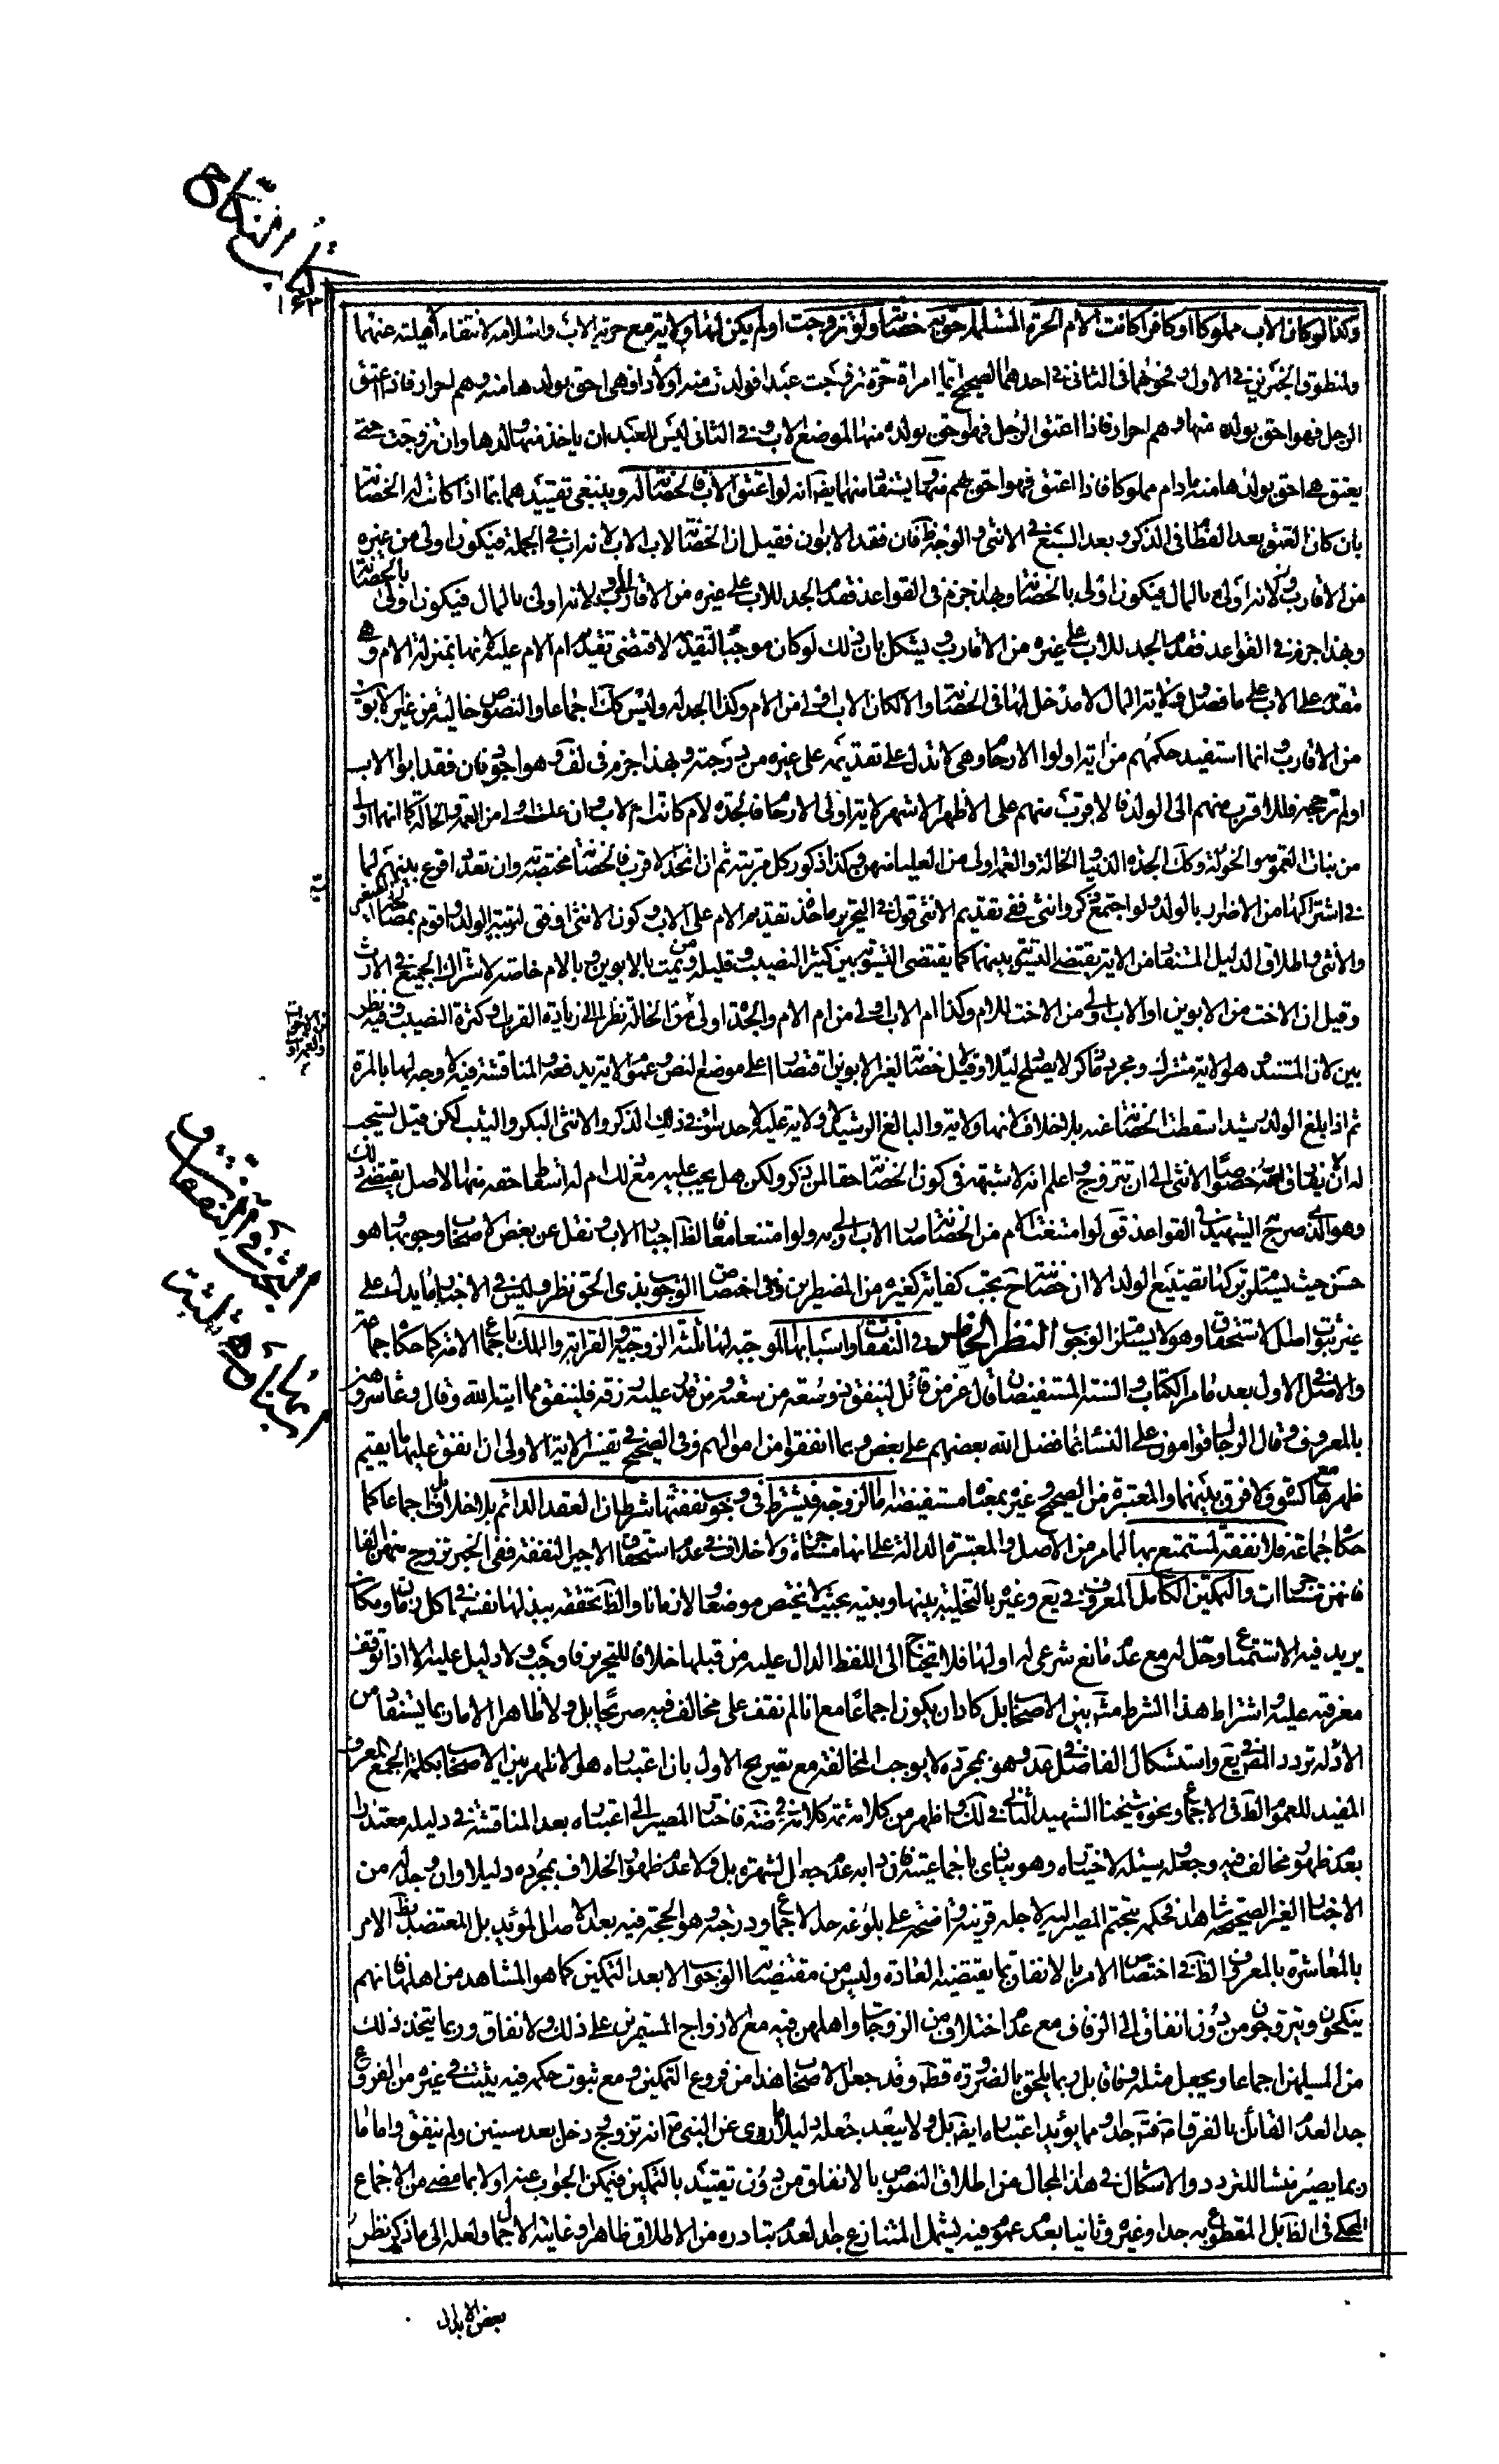 كتاب النكاح
١٦٣
وكذا لو كان الاب مملوكا او كافرا كانت الام الحرة المسلمة احق به حضانة ولو تزوجت او لم يكن لها ولاية مع حرية الاب واسلامه لانتفاء اهليته عنهما
ولمنطوق الخبرين في الاول ونحوهما في الثاني في احدهما الصحيح ايما امراة حرة تزوجت عبدا فولدت منه اولادا فهي احق بولدها منه وهم احرار فاذا اعتق
الرجل فهو احق بولده منها وهم احرار فاذا اعتق الرجل فهو احق بولده منها لموضع الاب وفي الثاني ليس للعبد ان ياخذ منها ولدها وان تزوجت حتى
يعتق هي احق بولدها منه مادام مملوكا فاذا اعتق فهو احق بهم منها ويستفاد منهما يضا انه لو اعتق الاب فالحضانة له وينبغي تقييدهما بما اذا كانت له الحضانة
بان كان العتق بعد الفطام في الذكر وبعد السبع في الانثى والوجه ظ فان فقد الابوان فقيل ان الحضانة لاب الاب لانه اب في الجملة فيكون اولى من غيره
من الاقارب ولانه اولى بالمال فيكون اولى بالحضانة وبهذا جزم في القواعد فقدم الجد للاب على غيره من الاقارب ولانه اولى بالمال فيكون اولى بالحضانة
وبهذا جزم في القواعد فقدم الجد للاب على غيره من الاقارب ويشكل بان ذلك لو كان موجبا لتقديمه لاقتضى تقديم ام الام عليه لانها بمنزلة الام وهي
مقدمة على الاب على ما فصل وولاية المال لا مدخل لها في الحضانة والا لكان الاب اولى من الام وكذا الجد له وليس كك اجماعا والنصوص خالية من غير الابوين
من الاقارب وانما استفيد حكمهم من اية اولوا الارحام وهي لا تدل على تقديمه على غيره من درجته وبهذا جزم في لف وهو اجود فان فقد ابو الاب
او لم ترجحه فللاقرب منهم الى الولد فالاقرب منهم على الاظهر الاشهر لاية اولى الارحام فالجدة لام كانت ام لاب وان علت اولى من العمة والخالة كما انهما اولى
من بنات العمومة والخؤلة وكك الجدة الدنيا والخالة والعمة اولى من العليا منهن وكذا ذكور كل مرتبة ثم ان اتحد الاقرب فالحضانة مختصة به وان تعدد اقرع بينهم لما
في اشتراكها من الاضرار بالولد ولو اجتمع ذكر وانثى ففي تقديم الانثى قول في التحرير ماخذه تقديم الام على الاب وكون الانثى اوفق لتربية الولد واقوم بمصالحه لاسيما الصغير
والانثى واطلاق الدليل المستفاد من الاية يقتضي التسوية بينهما كما يقتضي التسوية بين كثير النصيب وقليله ومن يمت بالابوين وبالام خاصة لاشتراك الجميع في الارث
وقيل ان الاخت من الابوين او الاب اولى من الاخت للام وكذا ام الاب اولى من ام الام والجدة اولى من الخالة نظرا الى زيادة القرب او كثرة النصيب وفيه نظر
بين لان المستند هو الاية مشترك ومجرد ما ذكر لا يصلح دليلا وقيل لا حضانة لغير الابوين اقتصارا على موضع النص وعموم الاية يدفعه والمناقشة فيه لا وجه لها بالمرة
ثم اذا بلغ الولد رشيدا سقطت الحضانة عنه بلا خلاف لانها ولاية والبالغ الرشيد لا ولاية عليه لاحد سواء في ذلك الذكر والانثى البكر والثيب لكن قيل يستحب
له ان لا يفارق امه خصوصا الانثى الى ان تتزوج واعلم انه لا شبهة في كون الحضانة حقا لمن ذكر ولكن هل يجب عليه مع ذلك ام له اسقاط حقه منها الاصل يقتضي ذلك
وهو الذي صرح به الشهيد في القواعد فق لو امتنعت الام من الحضانة صار الاب اولى به ولو امتنعا معا فالظ اجبار الاب ونقل عن بعض الاصحاب وجوبها وهو
حسن حيث يستلزم تركها تضييع الولد الا ان حضانته ح تجب كفاية كغيره من المضطرين وفي اختصاص الوجوب بذي الحق نظر وليس في الاخبار ما يدل على
غير ثبوت اصل الاستحقاق وهو لا يستلزم الوجوب النظر الخامس في النفقات واسبابها الموجبة لها ثلثة الزوجية والقرابة والملك باجماع الامة كما حكاه جماعة
والاصل في الاول بعده ما مر الكتاب والسنة المستفيضان قال عز من قائل لينفق ذو سعة من سعته ومن قدر عليه رزقه فلينفق مما اتيه الله وقال وعاشروهن
بالمعروف وقال الرجال قوامون على النساء بما فضل الله بعضهم على بعض وبما انفقوا من اموالهم وفي الصحيح في تفسير الاية الاولى ان انفق عليها ما يقيم
ظهرها مع كسوة والا فرق بينهما والمعتبرة من الصحيح وغيره بمعناه مستفيضة اما الزوجة فيشترط في وجوب نفقتها شرطان العقد الدائم بلا خلاف بل اجماعا كما
حكاه جماعة فلا نفقة لمستمتع بها لما مر من الاصل والمعتبرة الدالة على انها مستاجرة ولا خلاف في عدم استحقاق الاجير النفقة ففي الخبر تزوج منهن الفا
فانهن مستاجرات والتمكين الكامل المعرف في يع وغيره بالتخلية بينها وبينه بحيث لا يختص موضعا ولا زمانا والظ تحققه ببذلها نفسها في كل زمان ومكان
يريد فيه الاستمتاع وحل له مع عدم مانع شرعي له او لها فلا يحتاج الى اللفظ الدال عليه من قبلها خلافا للتحرير فاوجبه ولا دليل عليه الا اذا توقف
معرفته عليه واشتراط هذا الشرط مشهور بين الاصحاب بل كاد ان يكون اجماعا مع انا لم نقف على مخالف فيه صريحا بل ولا ظاهرا الا ما ربما يستفاد من
الادلة تردد المص في يع واستشكال الفاضل في عد وهو بمجرده لا يوجب المخالفة مع تصريح الاول بان اعتباره هو الاظهر بين الاصحاب بكلمة الجمع المعرف
المفيد للعموم الظ في الاجماع ونحوه شيخنا الشهيد الثاني في لك واظهر من كلامه ثمة كلامه في ضه فاختار المصير الى اعتباره بعد المناقشة في دليله معتذرا
بعدم ظهور مخالف فيه وجعله وسيلة لاختياره وهو ينادي باجماعيته فان دابه عدم جعل الشهرة بل ولا عدم ظهور الخلاف بمجرده دليلا وان وجد له من
الاخبار الغير الصحيحة شاهد فحكمه بتحتم المصير اليه لاجله قرينة واضحة على بلوغه حد الاجماع ودرجته وهو الحجة فيه بعد الاصل المؤيد بل المعتضد بظ الامر
بالمعاشرة بالمعروف الظ في اختصاص الامر بالانفاق بما يقتضيه العادة وليس من مقتضياتها الوجوب الا بعد التمكين كما هو المشاهد من اهلها فانهم
ينكحون ويتزوجون من دون انفاق الى الزفاف مع عدم اختلاف من الزوجات واهلهن فيه مع الازواج المستمرين على ذلك ولا انفاق وربما يتخذ ذلك
من المسلمين اجماعا ويجعل مثله وفاقا بل ربما يلحق بالضرورة قطعا وقد جعل الاصحاب هذا من فروع التمكين ومع ثبوت حكمه فيه يثبت في غيره من الفروع
جدا لعدم القائل بالفرق جدا ومما يؤيد اعتباره ايضا بل ولا يبعد جعله دليلا ما روي عن النبي ص انه تزوج ودخل بعد سنين ولم ينفق واما ما
ربما يصير منشا للتردد والاشكال في هذا المجال من اطلاق النصوص بالانفاق من دون تقييد بالتمكين فيمكن الجواب عنه اولا بما مضى من الاجماع
المحكي في الظ بل المقطوع به جدا وغيره وثانيا بعدم عموم فيه يشمل المتنازع جدا لعدم تبادره من الاطلاق ظاهرا وغايته الاجمال ولعله الى ما ذكر نظر
بعض الابدال